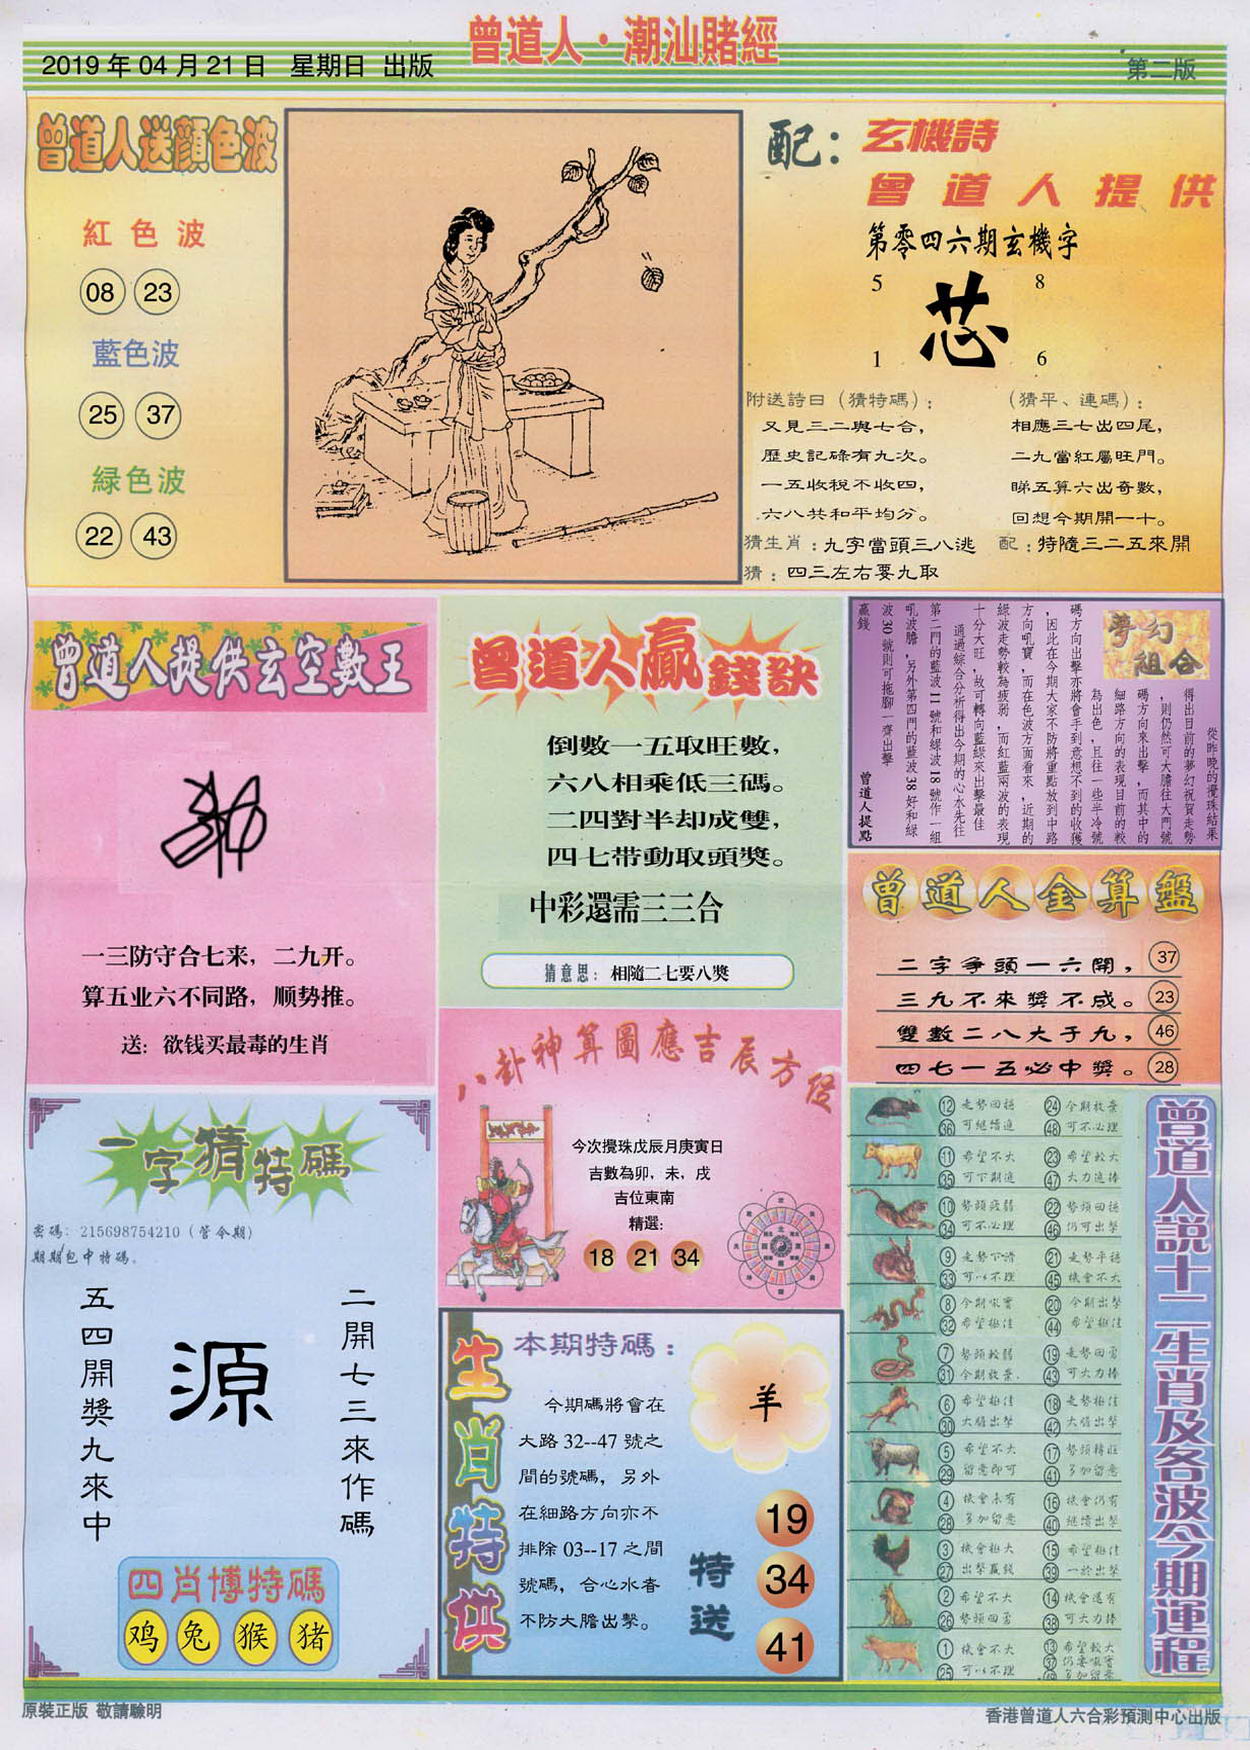 曾道人·潮汕賭經
2019年04月21日 星期日 出版
第二版
曾道人送顔色波
紅色波
08 23
藍色波
25 37
緑色波
22 43
配：玄機詩
曾道人提供
第零四六期玄機字
5 8
芯
1 6
附送詩曰（猜特碼）：
又見三二與七合，
歷史記碌有九次。
一五收稅不收四，
六八共和平均分。
（猜平、連碼）：
相應三七出四尾，
二九當紅屬旺門。
睇五算六出奇數，
回想今期開一十。
猜生肖：九字當頭三八逃 配：特隨三二五來開
猜：四三左右要九取
曾道人提供玄空數王
一三防守合七来，二九开。
算五业六不同路，顺势推。
送：欲钱买最毒的生肖
曾道人贏錢訣
倒數一五取旺數，
六八相乘低三碼。
二四對半却成雙，
四七带動取頭獎。
中彩還需三三合
猜意思：相隨二七要八獎
夢幻組合
從昨晚的攪珠結果
得出目前的夢幻祝賀走勢
，則仍然可大膽往大門號
碼方向來出擊，而其中的
細路方向的表現目前的較
為出色，且往一些半冷號
碼方向出擊亦將會手到意想不到的收獲
，因此在今期大家不防將重點放到中路
方向吼寶，而在色波方面看來，近期的
綠波走勢較為疲弱，而紅藍兩波的表現
十分大旺，故可轉向藍綠來出擊最佳
通過綜合分析得出今期的心水先往
第二門的藍波11號和綠波18號作一組
吼波膽，另外第四門的藍波38好和綠
波30號則可拖腳一齊出擊
贏錢
曾道人提點
曾道人金算盤
二字爭頭一六開，37
三九不來獎不成。23
雙數二八大于九，46
四七一五必中獎。28
八卦神算圖應吉辰方位
今次攪珠戊辰月庚寅日
吉數為卯，未，戌
吉位東南
精選：
18 21 34
一字猜特碼
密碼：215698754210（管令期）
期期包中特碼。
五四開獎九來中
源
二開七三來作碼
四肖博特碼
鸡 兔 猴 猪
生肖特供
本期特碼：
羊
今期碼將會在
大路32--47號之
間的號碼，另外
在細路方向亦不
排除03--17之間
號碼，合心水者
不防大膽出擊。
特送
19
34
41
曾道人説十二生肖及各波今期運程
12 走勢回穩 24 今期放棄
36 可繼續追 48 可不必理
11 希望不大 23 希望較大
35 可下期追 47 大力追捧
10 勢頭疲弱 22 勢頭回穩
34 可不必理 46 仍可出擊
9 走勢下滑 21 走勢平穩
33 可以不理 45 機會不大
8 今期吼實 20 今期出擊
32 希望極佳 44 希望極佳
7 勢頭較弱 19 走勢回勇
31 今期放棄 43 可大力捧
6 希望極佳 18 走勢極佳
30 大膽出擊 42 大膽出擊
5 希望不大 17 勢頭轉旺
29 留意即可 41 多加留意
4 機會未有 16 機會仍有
28 多加留意 40 繼續出擊
3 機會極大 15 希望極佳
27 出擊贏錢 39 一於出擊
2 希望不大 14 機會還有
26 勢頭回勇 38 可大力捧
1 機會不大 13 希望較大
25 可以不理 37 仍要吼實
49 多加留意
原裝正版 敬請驗明
香港曾道人六合彩預測中心出版